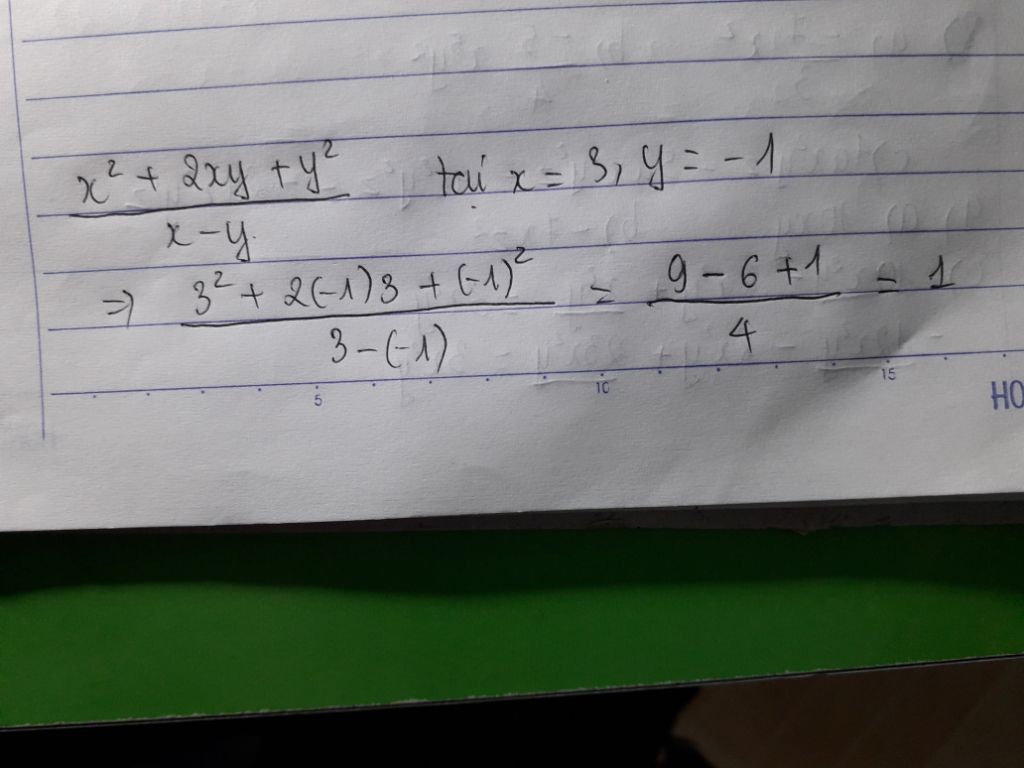 x² + 2xy + y² / x - y tại x = 3, y = -1
=> 3² + 2(-1)3 + (-1)² / 3 - (-1) = 9 - 6 + 1 / 4 = 1
5 10 15
HO